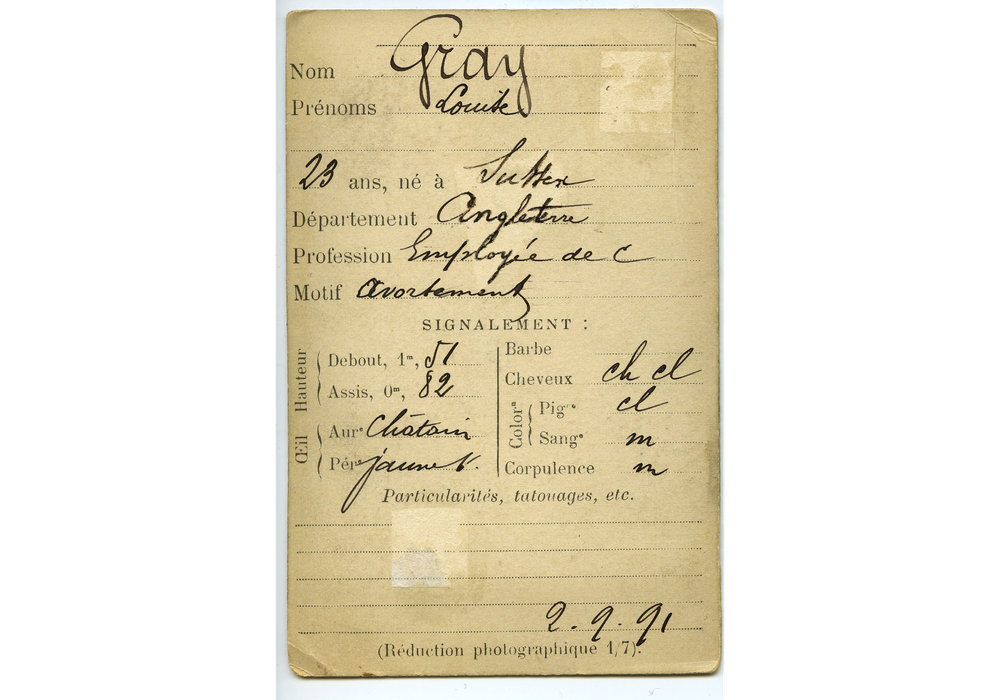 Nom Gray
Prénoms Louise
23 ans, né à Sussex
Département Angleterre
Profession Employée de C
Motif Avortement
SIGNALEMENT :
Hauteur
Debout, 1ᵐ, 51
Assis, 0ᵐ, 82
Œil
Aurᵉ Châtain
Pérᵉ jaune v.
Barbe
Cheveux ch cl
Colorⁿ
Pigʳᵉ cl
Sangᵉ m
Corpulence m
Particularités, tatouages, etc.
2. 9. 91
(Réduction photographique 1/7).